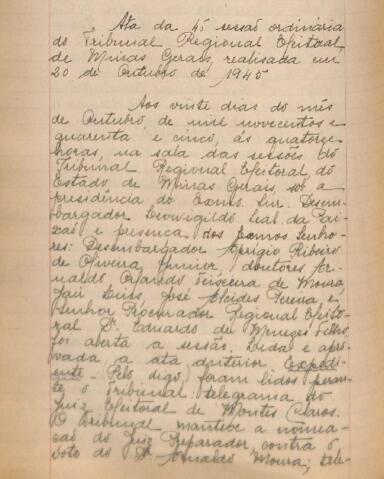 Ata da 4ª sessão ordinária
do Tribunal Regional Eleitoral
de Minas Gerais, realisada em
20 de Outubro de 1945
Aos vinte dias do mês
de Outubro de mil novecentos e
quarenta e cinco, ás quatorze
horas, na sala das sessões do
Tribunal Regional Eleitoral, do
Estado de Minas Gerais, sob a
presidência do Exmo. Snr. Desem-
bargador Leovigildo Leal da Pai-
xão e presença dos exmos Senho-
res: Desembargador Aprigio Ribeiro
de Oliveira Junior, doutores Ar-
naldo Orlando Teixeira de Moura,
Jair Lins, José Alcides Pereira, e
Senhor Procurador Regional Eleito-
ral Dr. Eduardo de Menezes Filho,
foi aberta a sessão. Lida e apro-
vada a ata anterior. Expedi-
ente - Pelo digo, foram lidos peran-
te o Tribunal: telegrama do
Juiz Eleitoral de Montes Claros.
O Tribunal manteve a nomea-
ção do Juiz Preparador, contra o
voto do Dr. Arnaldo Moura; tele-